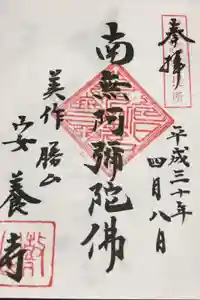 奉拝
平成三十年
四月八日
南無阿彌陀佛
美作勝山
安養寺